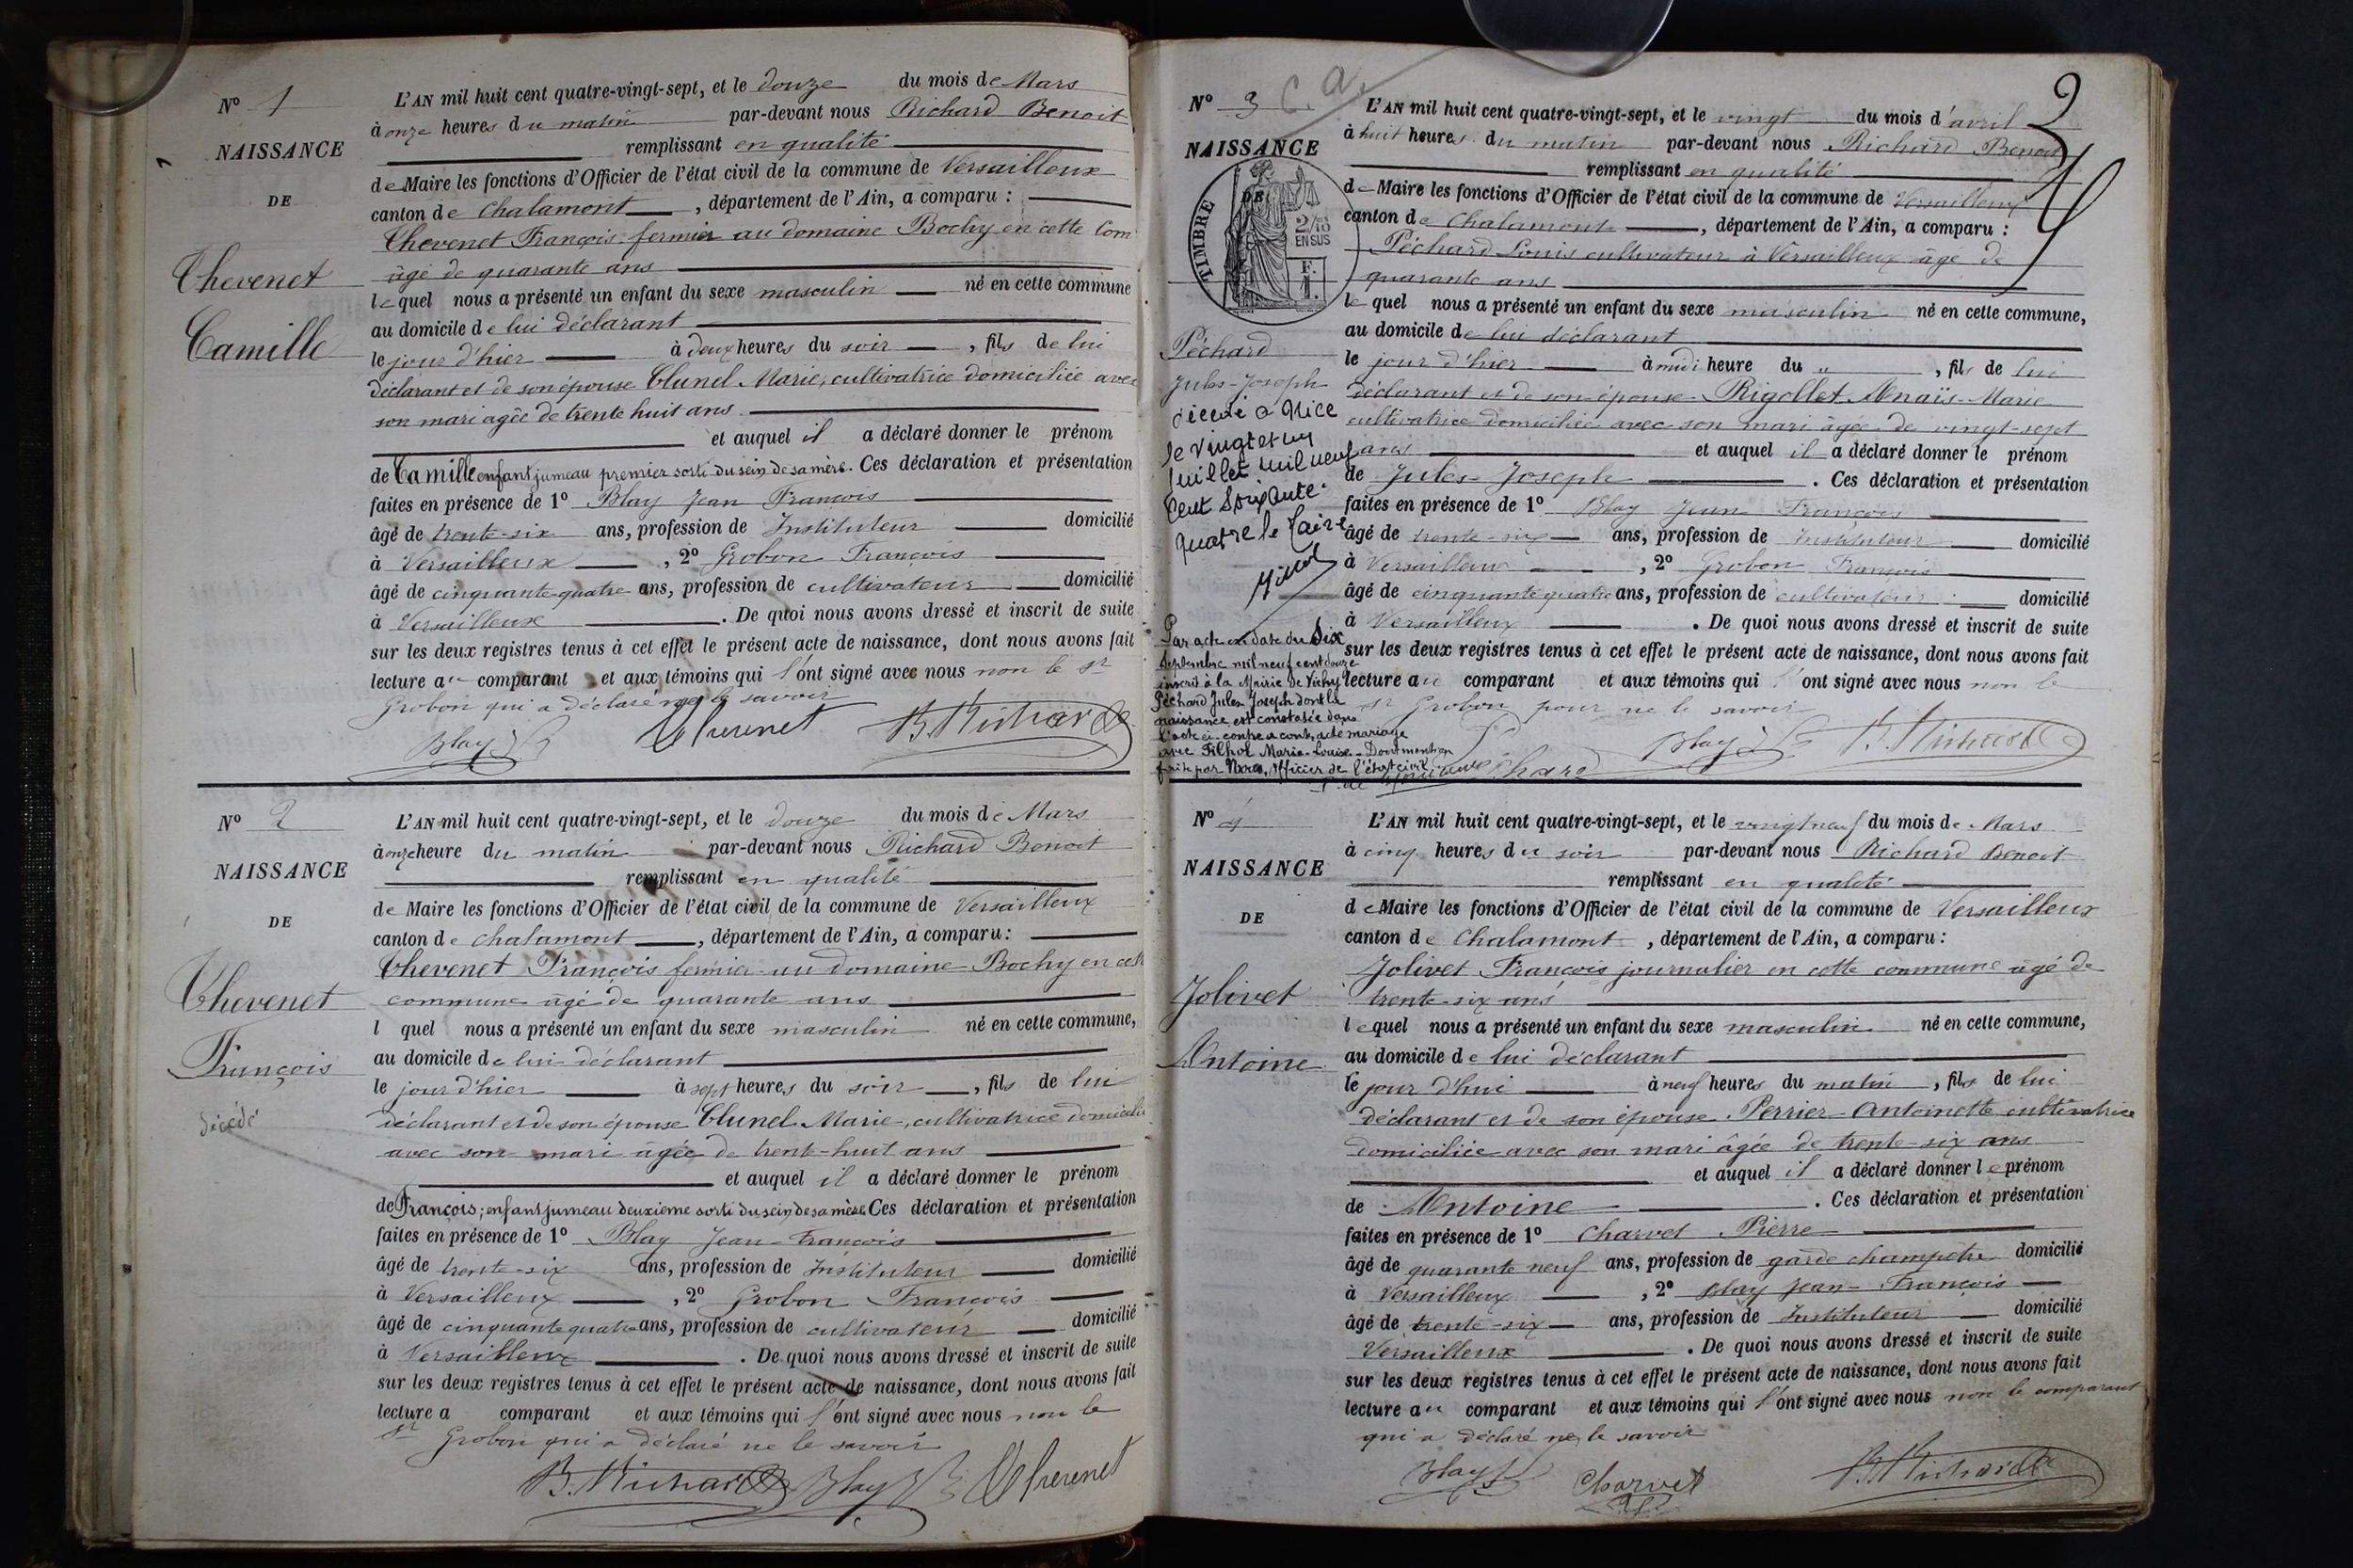 N° 1
NAISSANCE
DE
Thevenet
Camille
L'AN mil huit cent quatre-vingt-sept, et le douze du mois de Mars
à onze heures du matin par-devant nous Richard Benoit
remplissant en qualité
de Maire les fonctions d'Officier de l'état civil de la commune de Versailleux
canton de Chalamont, département de l'Ain, a comparu :
Thevenet François fermier au domaine Bochy en cette Com
âgé de quarante ans
lequel nous a présenté un enfant du sexe masculin né en cette commune
au domicile de lui déclarant
le jour d'hier à deux heures du soir, fils de lui
déclarant et de son épouse Clunel Marie, cultivatrice domiciliée avec
son mari agée de trente huit ans
et auquel il a déclaré donner le prénom
de Camille enfant jumeau premier sorti du sein de sa mère. Ces déclaration et présentation
faites en présence de 1° Blay Jean François
âgé de trente-six ans, profession de Instituteur domicilié
à Versailleux, 2° Grobon François
âgé de cinquante quatre ans, profession de cultivateur domicilié
à Versailleux. De quoi nous avons dressé et inscrit de suite
sur les deux registres tenus à cet effet le présent acte de naissance, dont nous avons fait
lecture au comparant et aux témoins qui l'ont signé avec nous non le Sr
Grobon qui a déclaré ne le savoir
Blay Thevenet B. Richard
N° 2
NAISSANCE
DE
Thevenet
François
décédé
L'AN mil huit cent quatre-vingt-sept, et le douze du mois de Mars
à onze heure du matin par-devant nous Richard Benoit
remplissant en qualité
de Maire les fonctions d'Officier de l'état civil de la commune de Versailleux
canton de Chalamont, département de l'Ain, a comparu :
Thevenet François fermier au domaine Bochy en cett
commune âgé de quarante ans
l quel nous a présenté un enfant du sexe masculin né en cette commune,
au domicile de lui déclarant
le jour d'hier à sept heures du soir, fils de lui
déclarant et de son épouse Clunel Marie, cultivatrice domicilié
avec son mari âgée de trente-huit ans
et auquel il a déclaré donner le prénom
de François; enfant jumeau deuxième sorti du sein de sa mère Ces déclaration et présentation
faites en présence de 1° Blay Jean-François
âgé de trente-six ans, profession de Instituteur domicilié
à Versailleux, 2° Grobon François
âgé de cinquante quatre ans, profession de cultivateur domicilié
à Versailleux. De quoi nous avons dressé et inscrit de suite
sur les deux registres tenus à cet effet le présent acte de naissance, dont nous avons fait
lecture a comparant et aux témoins qui l'ont signé avec nous non le
Sr Grobon qui a déclaré ne le savoir
B. Richard Blay Thevenet
2
N° 3 C. a.
NAISSANCE
DE
TIMBRE
2/10 EN SUS
F. 1.
Péchard
Jules-Joseph
décédé à Nice
le vingt et un
juillet mil neuf
cent soixante
quatre le Maire
Par acte en date du Dix
Septembre mil neuf cent douze
inscrit à la Mairie de Vichy
Péchard Jules Joseph dont la
naissance est constatée dans
l'acte ci-contre a contracté mariage
avec Filhol Marie-Louise. Dont mention
faite par Nous, officier de l'état civil
L'AN mil huit cent quatre-vingt-sept, et le vingt du mois d'avril
à huit heures du matin par-devant nous Richard Benoit
remplissant en qualité
de Maire les fonctions d'Officier de l'état civil de la commune de Versailleux
canton de Chalamont, département de l'Ain, a comparu :
Péchard Louis cultivateur à Versailleux âgé de
quarante ans
le quel nous a présenté un enfant du sexe masculin né en cette commune,
au domicile de lui déclarant
le jour d'hier à midi heure du ", fils de lui
déclarant et de son épouse Rigollet Anaïs-Marie
cultivatrice domiciliée avec son mari âgée de vingt-sept
ans et auquel il a déclaré donner le prénom
de Jules-Joseph. Ces déclaration et présentation
faites en présence de 1° Blay Jean François
âgé de trente-six ans, profession de instituteur domicilié
à Versailleux, 2° Grobon François
âgé de cinquante quatre ans, profession de cultivateur domicilié
à Versailleux. De quoi nous avons dressé et inscrit de suite
sur les deux registres tenus à cet effet le présent acte de naissance, dont nous avons fait
lecture au comparant et aux témoins qui l'ont signé avec nous non le
Sr Grobon pour ne le savoir
Péchard Blay B. Richard
N° 4
NAISSANCE
DE
Jolivet
Antoine
L'AN mil huit cent quatre-vingt-sept, et le vingt neuf du mois de Mars
à cinq heures du soir par-devant nous Richard Benoit
remplissant en qualité
de Maire les fonctions d'Officier de l'état civil de la commune de Versailleux
canton de Chalamont, département de l'Ain, a comparu :
Jolivet François journalier en cette commune âgé de
trente-six ans
lequel nous a présenté un enfant du sexe masculin né en cette commune,
au domicile de lui déclarant
le jour d'hui à neuf heures du matin, fils de lui
déclarant et de son épouse Perrier Antoinette cultivatrice
domiciliée avec son mari âgée de trente-six ans
et auquel il a déclaré donner le prénom
de Antoine. Ces déclaration et présentation
faites en présence de 1° Charvet Pierre
âgé de quarante neuf ans, profession de garde champêtre domicilié
à Versailleux, 2° Blay Jean-François
âgé de trente-six ans, profession de Instituteur domicilié
Versailleux. De quoi nous avons dressé et inscrit de suite
sur les deux registres tenus à cet effet le présent acte de naissance, dont nous avons fait
lecture au comparant et aux témoins qui l'ont signé avec nous non le comparant
qui a déclaré ne le savoir
Blay Charvet B. Richard